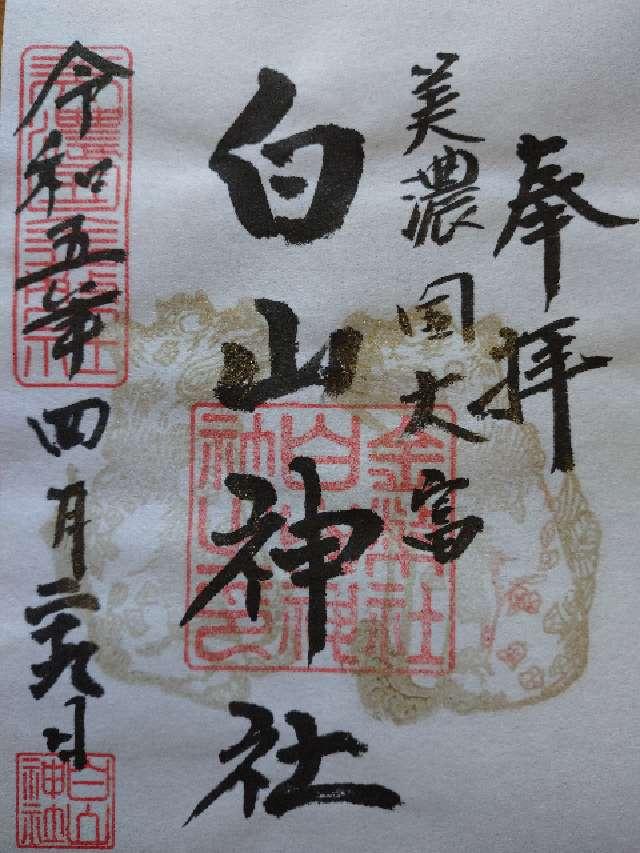 奉拝
美濃国大富
白山神社
令和五年四月二十九日
白山
神社